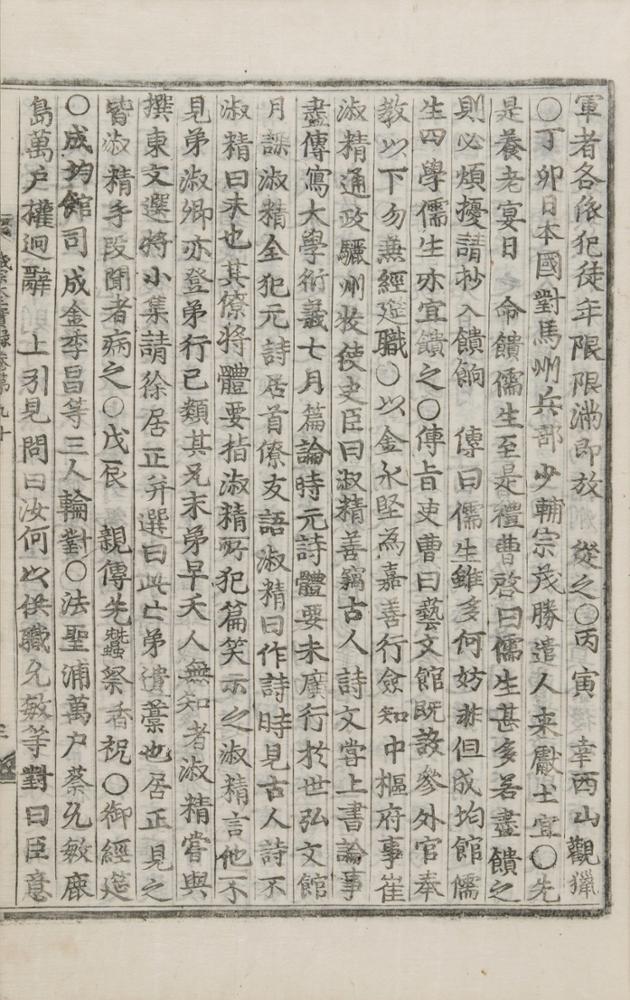 軍者各依犯徒年限限滿即放 從之○丙寅 幸西山觀獵
○丁卯日本國對馬州兵部少輔宗茂勝遣人来獻土宜○先
是養老宴日 命饋儒生至是禮曹啓曰儒生甚多若盡饋之
則必煩擾請抄入饋餉 傳曰儒生雖多何妨非但成均館儒
生四學儒生亦宜饋之○傳旨吏曹曰藝文館旣設參外官奉
敎以下勿兼經筵職○以金永堅為嘉善行僉知中樞府事崔
淑精通政驪州牧使史臣曰淑精善竊古人詩文嘗上書論事
盡傳寫大學衍義七月篇論時元詩體要未廣行於世弘文館
月課淑精全犯元詩居首僚友語淑精曰作詩時見古人詩不
淑精曰未也其僚將體要指淑精所犯篇笑示之淑精言他不
見弟淑卿亦登弟行已類其兄末弟早夭人無知者淑精嘗與
撰東文選將小集請徐居正并選曰此亡弟遺藁也居正見之
皆淑精手段聞者病之○戊辰 親傳先蠶祭香祝○御經筵
○成均館司成金季昌等三人輪對○法聖浦萬户蔡允敏鹿
島萬户權迥辭 上引見問曰汝何以供職允敏等對曰臣意